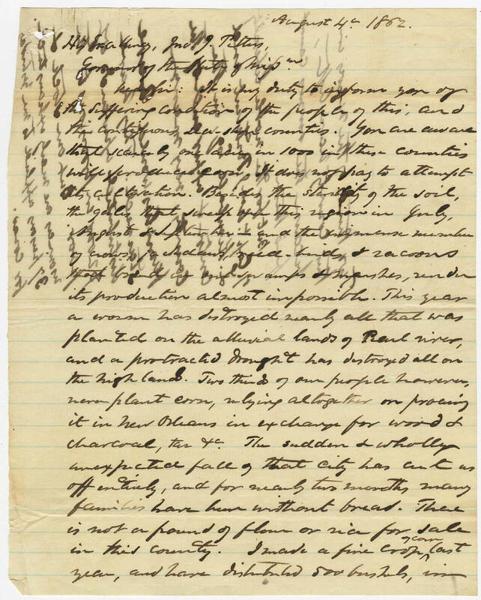 August 4th 1862.
His Excellency, Jno. J. Pettus,
Governor of the State of Miss
It is my duty to inform you of
the suffering condition of the people of this, and
the contiguous sea-shore counties. You are aware
that scarcely one acre in 1000 in these counties
will produce corn, It does not pay to attempt
its cultivation. Besides the sterility of the soil,
the gales that sweep over this region in July,
August & September — and the immense number
of crows, &
that breed in our swamps & marshes, render
its production almost impossible. This year
a worm has destroyed nearly all that was
planted on the alluvial lands of Pearl river,
and a protracted drought has destroyed all on
the high lands. Two thirds of our people however,
never plant corn, relying altogether on procuring
it in New Orleans in exchange for wood &
charcoal, tar &c. The sudden & wholly
unexpected fall of that city has cut us
off entirely, and for nearly two months many
families have been without bread. There
is not a pound of flour or rice for sale
in this county. I made a fine crop corn last
year, and have distributed 500 bushels, in